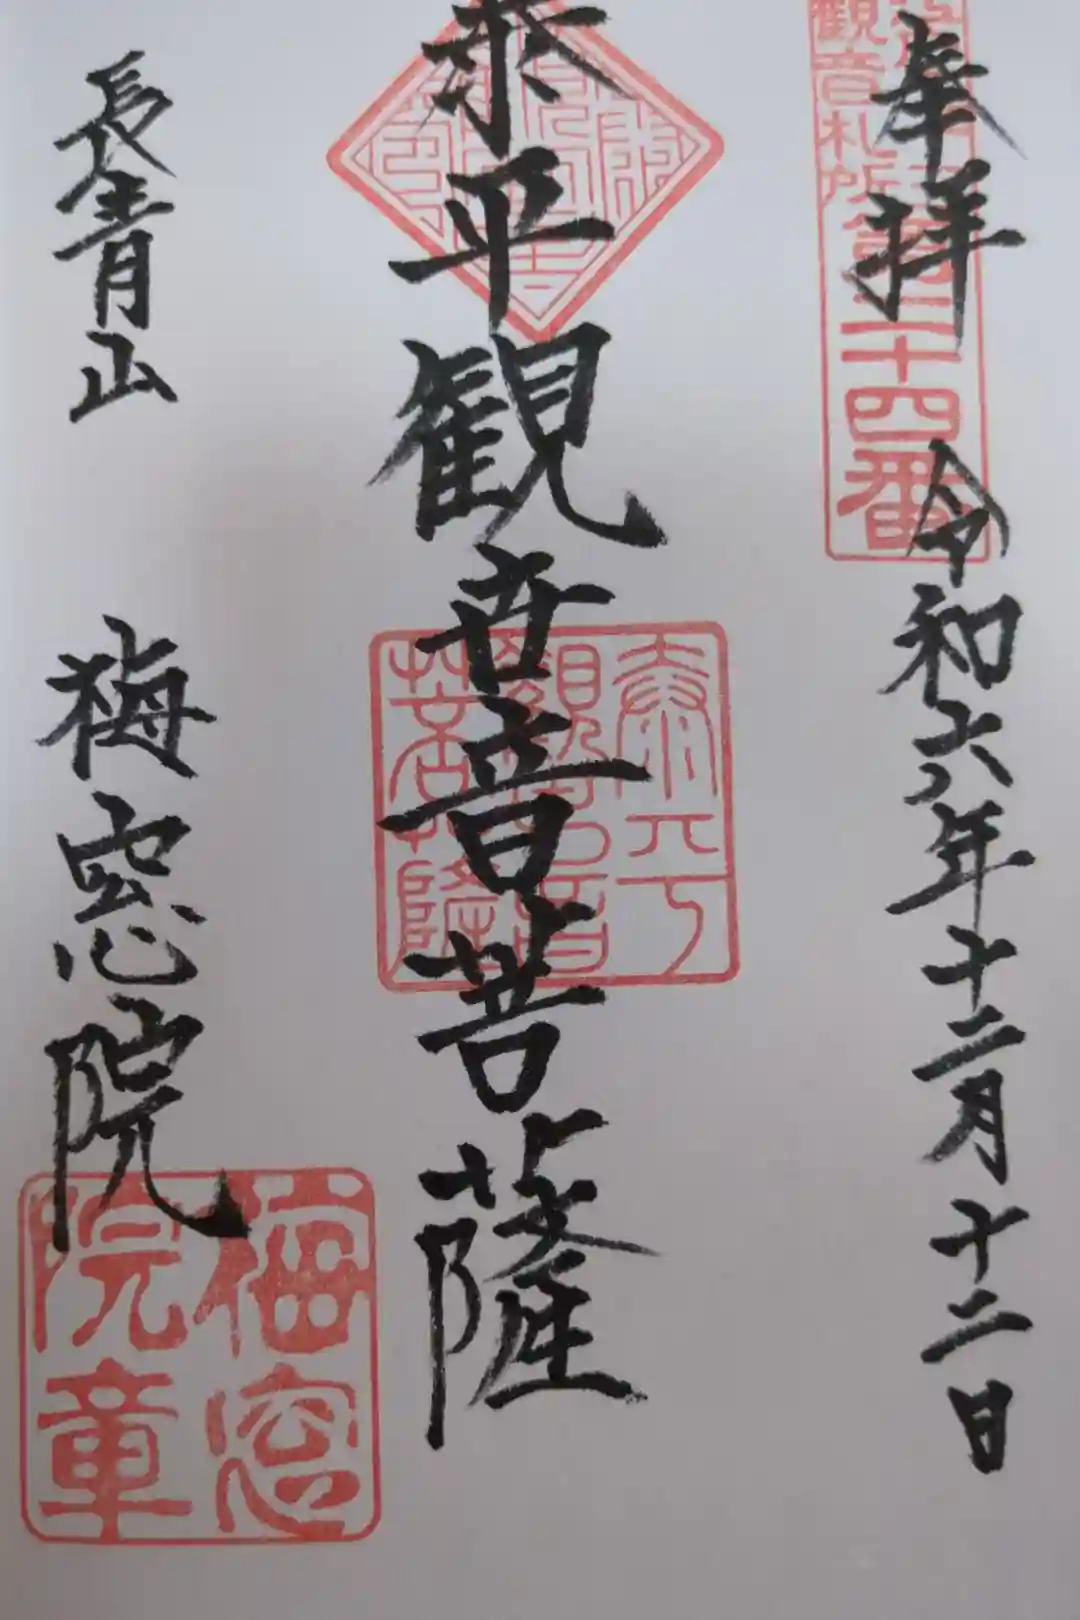 奉拝
令和六年十二月十二日
観音札所第二十四番
泰平観世音菩薩
泰平
観世音
菩薩
長青山
梅窓院
梅窓
院章